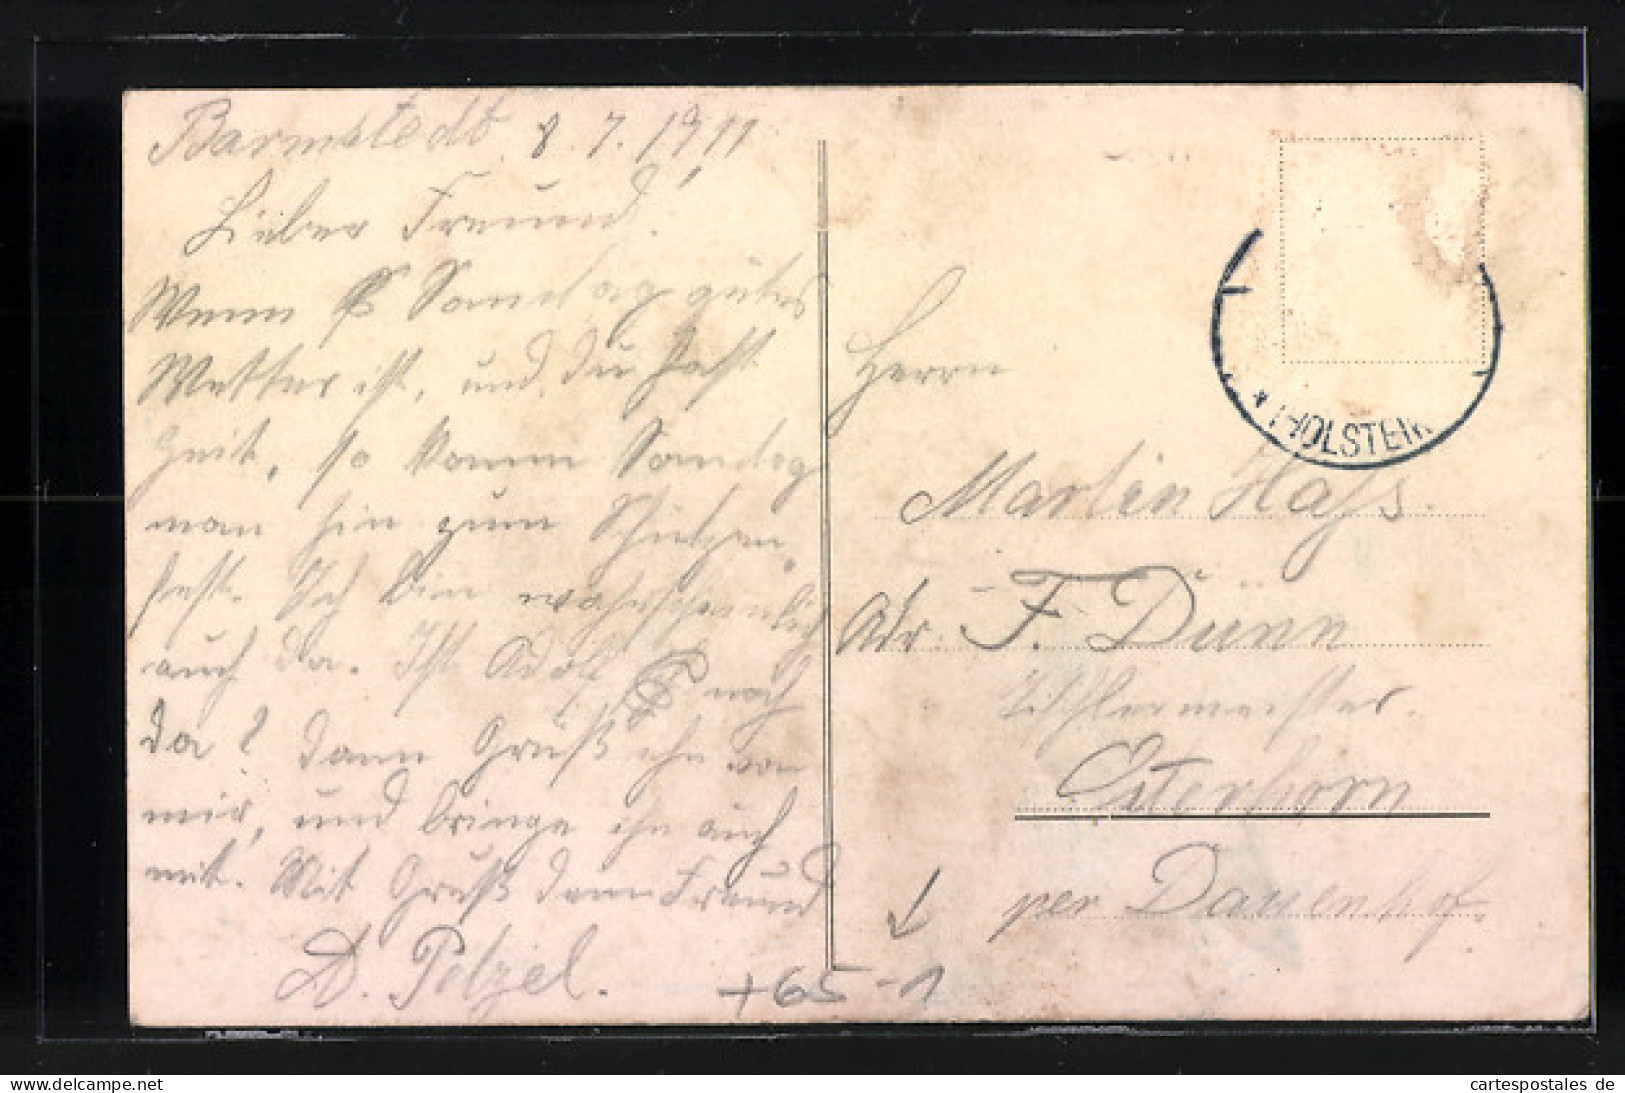 Barmstedt 8.7.1911
Lieber Freund!
Wenn Sonntag gutes
Wetter ist, und du hast
Zeit, so komm Sonntag
man hin zum Schützen,
fest. Ich bin wahrscheinlich
auch da. Ist Adolf noch
da? Dann Grüß ihn von
mir, und bringe ihn auch
mit. Mit Gruß dein Freund
A. Pelzel.
+65-1
* HOLSTEIN
Herrn
Martin Haß.
Adr. F. Dünn
Tischlermeister.
Osterhorn
per Dauenhof.
www.delcampe.net
cartespostales de